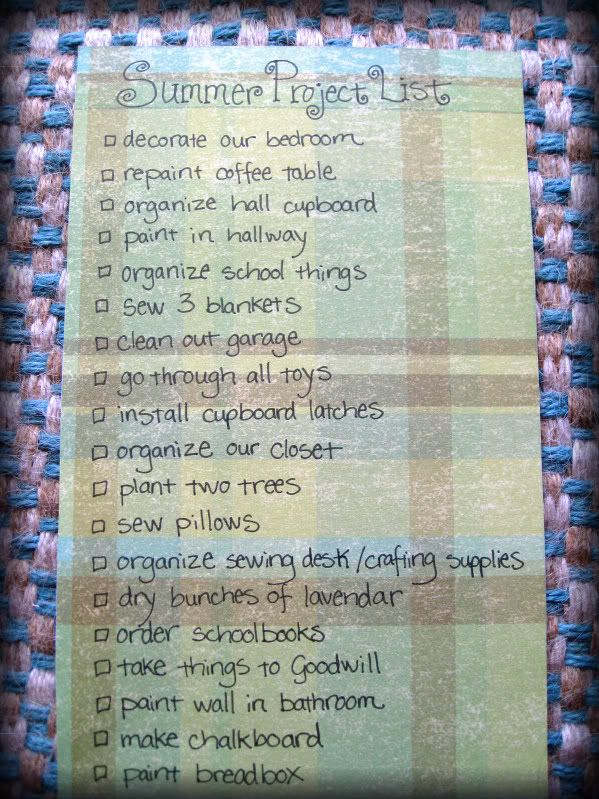 Summer Project List
decorate our bedroom
repaint coffee table
organize hall cupboard
paint in hallway
organize school things
sew 3 blankets
clean out garage
go through all toys
install cupboard latches
organize our closet
plant two trees
sew pillows
organize sewing desk/crafting supplies
dry bunches of lavendar
order schoolbooks
take things to Goodwill
paint wall in bathroom
make chalkboard
paint breadbox